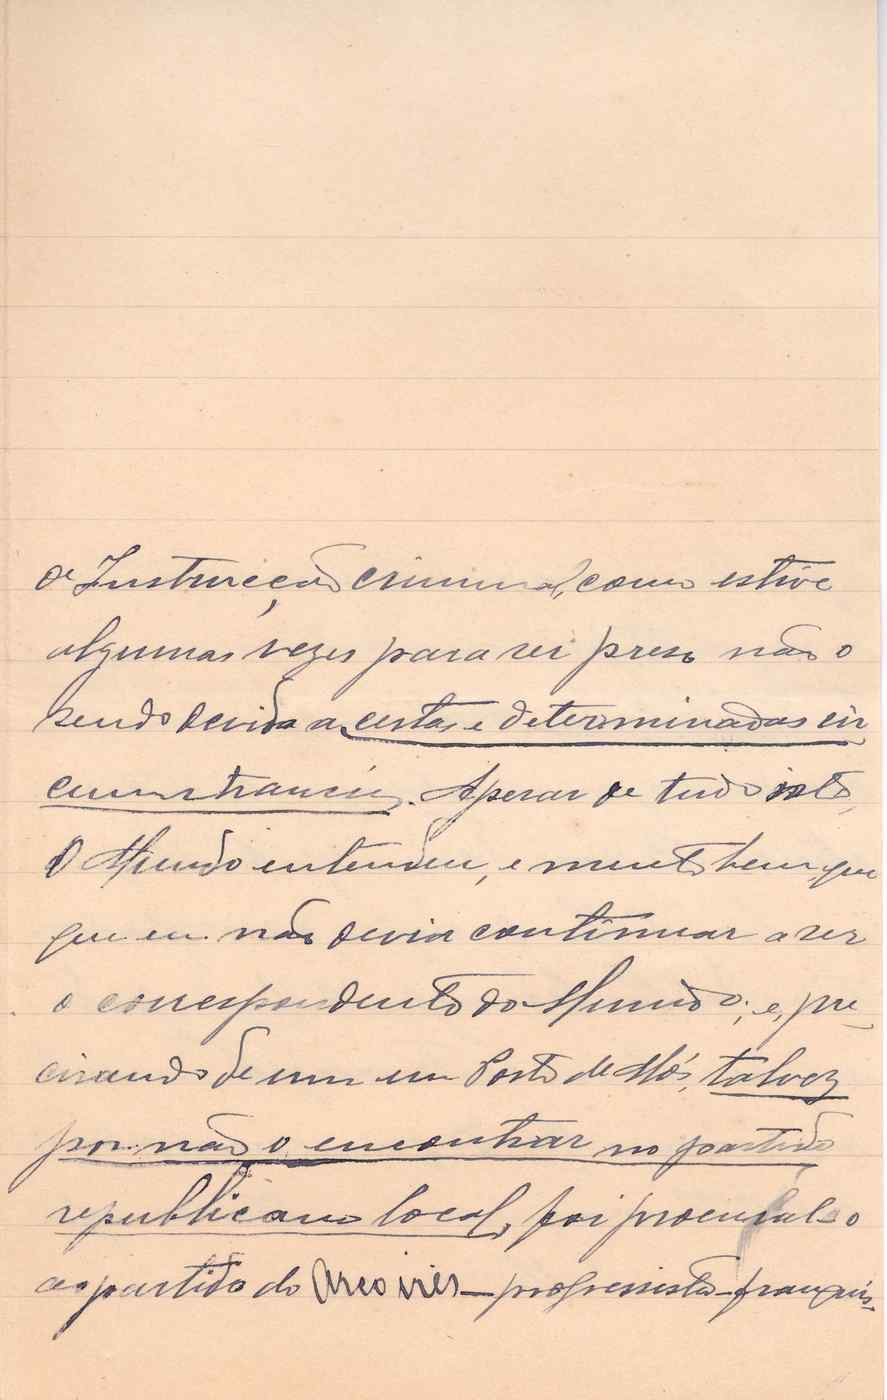 de Instrucção criminal, como estive
algumas vezes para ser preso não o
sendo devido a certas e determinadas cir
cumstancias. Apesar de tudo isto,
O Mundo entendeu, e muito bem, que
que eu não devia continuar a ser
o correspondente do Mundo; e, pre-
cisando de um em Porto de Mós, talvez
por não o encontrar no partido
republicano local, foi procural-o
ao partido do Arco iris—progressista-franquis-